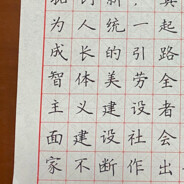 的新
为人统一起
成长的引路
智体美劳全
主义建设者
面建设社会
家不断作出